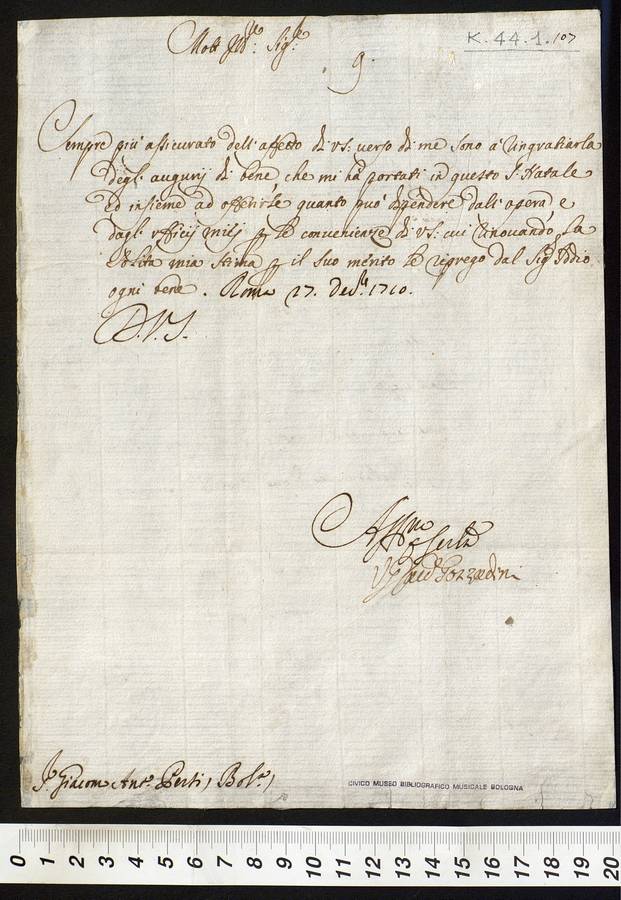 Molt Ill.re Sig.re
K. 44. 1. 107
9.
Sempre più assicurato dell'affetto di VS: verso di me sono a ringratiarla
degl'augurij di bene, che mi ha portati in questo S. Natale
ed insieme ad offerirle quanto può dipendere dall'opera, e
dagl'ufficij miei p le convenienze di VS: cui rinovando la
solita mia stima p il suo merito le reprego dal Sig. Iddio
ogni bene. Roma 27. Dec. 1710.
D.V.S.
Aff.mo
Gozzadini
S.r Giacom Ant.o Perti, Bol.a,
CIVICO MUSEO BIBLIOGRAFICO MUSICALE BOLOGNA
0 1 2 3 4 5 6 7 8 9 10 11 12 13 14 15 16 17 18 19 20